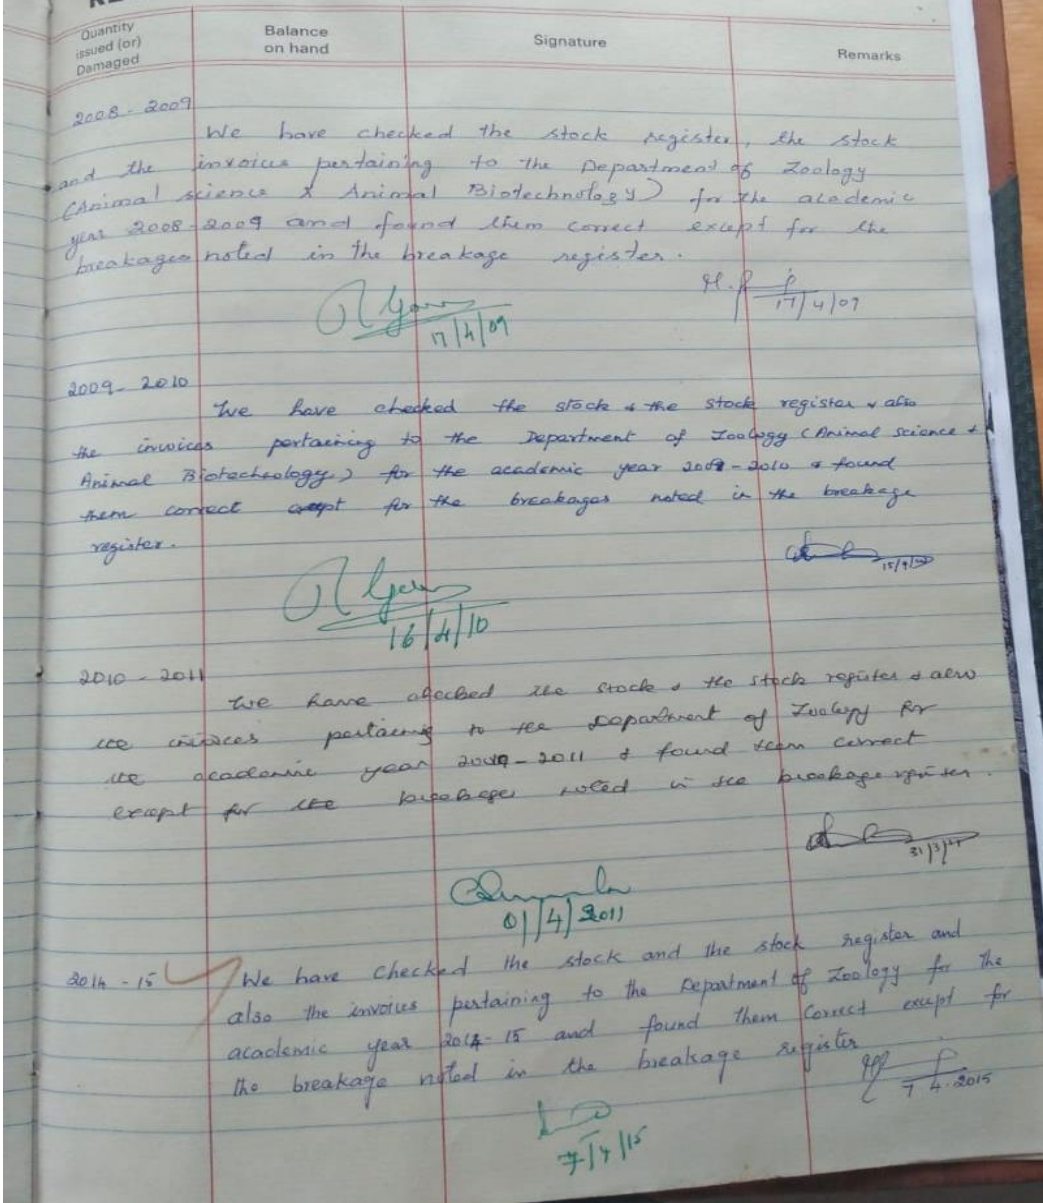 Quantity
issued (or)
Damaged
Balance
on hand
Signature
Remarks
2008-2009
We have checked the stock register, the stock
and the invoices pertaining to the Department of Zoology
(Animal science & Animal Biotechnology) for the academic
year 2008-2009 and found them correct except for the
breakages noted in the breakage register.
17/4/09
17/4/09
2009-2010
We have checked the stock & the stock register & also
the invoices pertaining to the Department of Zoology (Animal science &
Animal Biotechnology) for the academic year 2009-2010 & found
them correct except for the breakages noted in the breakage
register.
16/4/10
2010-2011
We have checked the stock & the stock register & also
the invoices pertaining to the Department of Zoology for
the academic year 2011 & found them correct
except for the breakages noted in the breakage register.
31/3/11
01/4/2011
2014-15 We have checked the stock and the stock register and
also the invoices pertaining to the Department of Zoology for the
academic year 2014-15 and found them correct except for
the breakage noted in the breakage register
7.4.2015
7/4/15